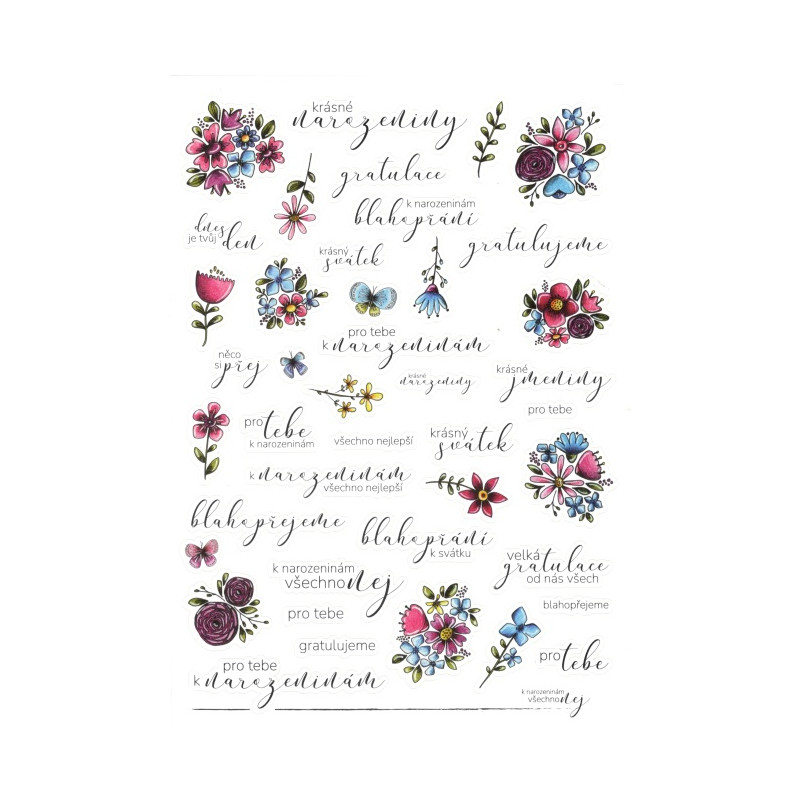 krásné
narozeniny
gratulace
k narozeninám
blahopřání
dnes
je tvůj den
krásný
svátek
gratulujeme
pro tebe
k narozeninám
něco
si přej
krásné
narozeniny
krásné
jmeniny
pro tebe
pro tebe
k narozeninám
všechno nejlepší
krásný
svátek
k narozeninám
všechno nejlepší
blahopřejeme
blahopřání
k svátku
velká
gratulace
od nás všech
k narozeninám
všechno nej
blahopřejeme
pro tebe
gratulujeme
pro tebe
pro tebe
k narozeninám
k narozeninám
všechno nej